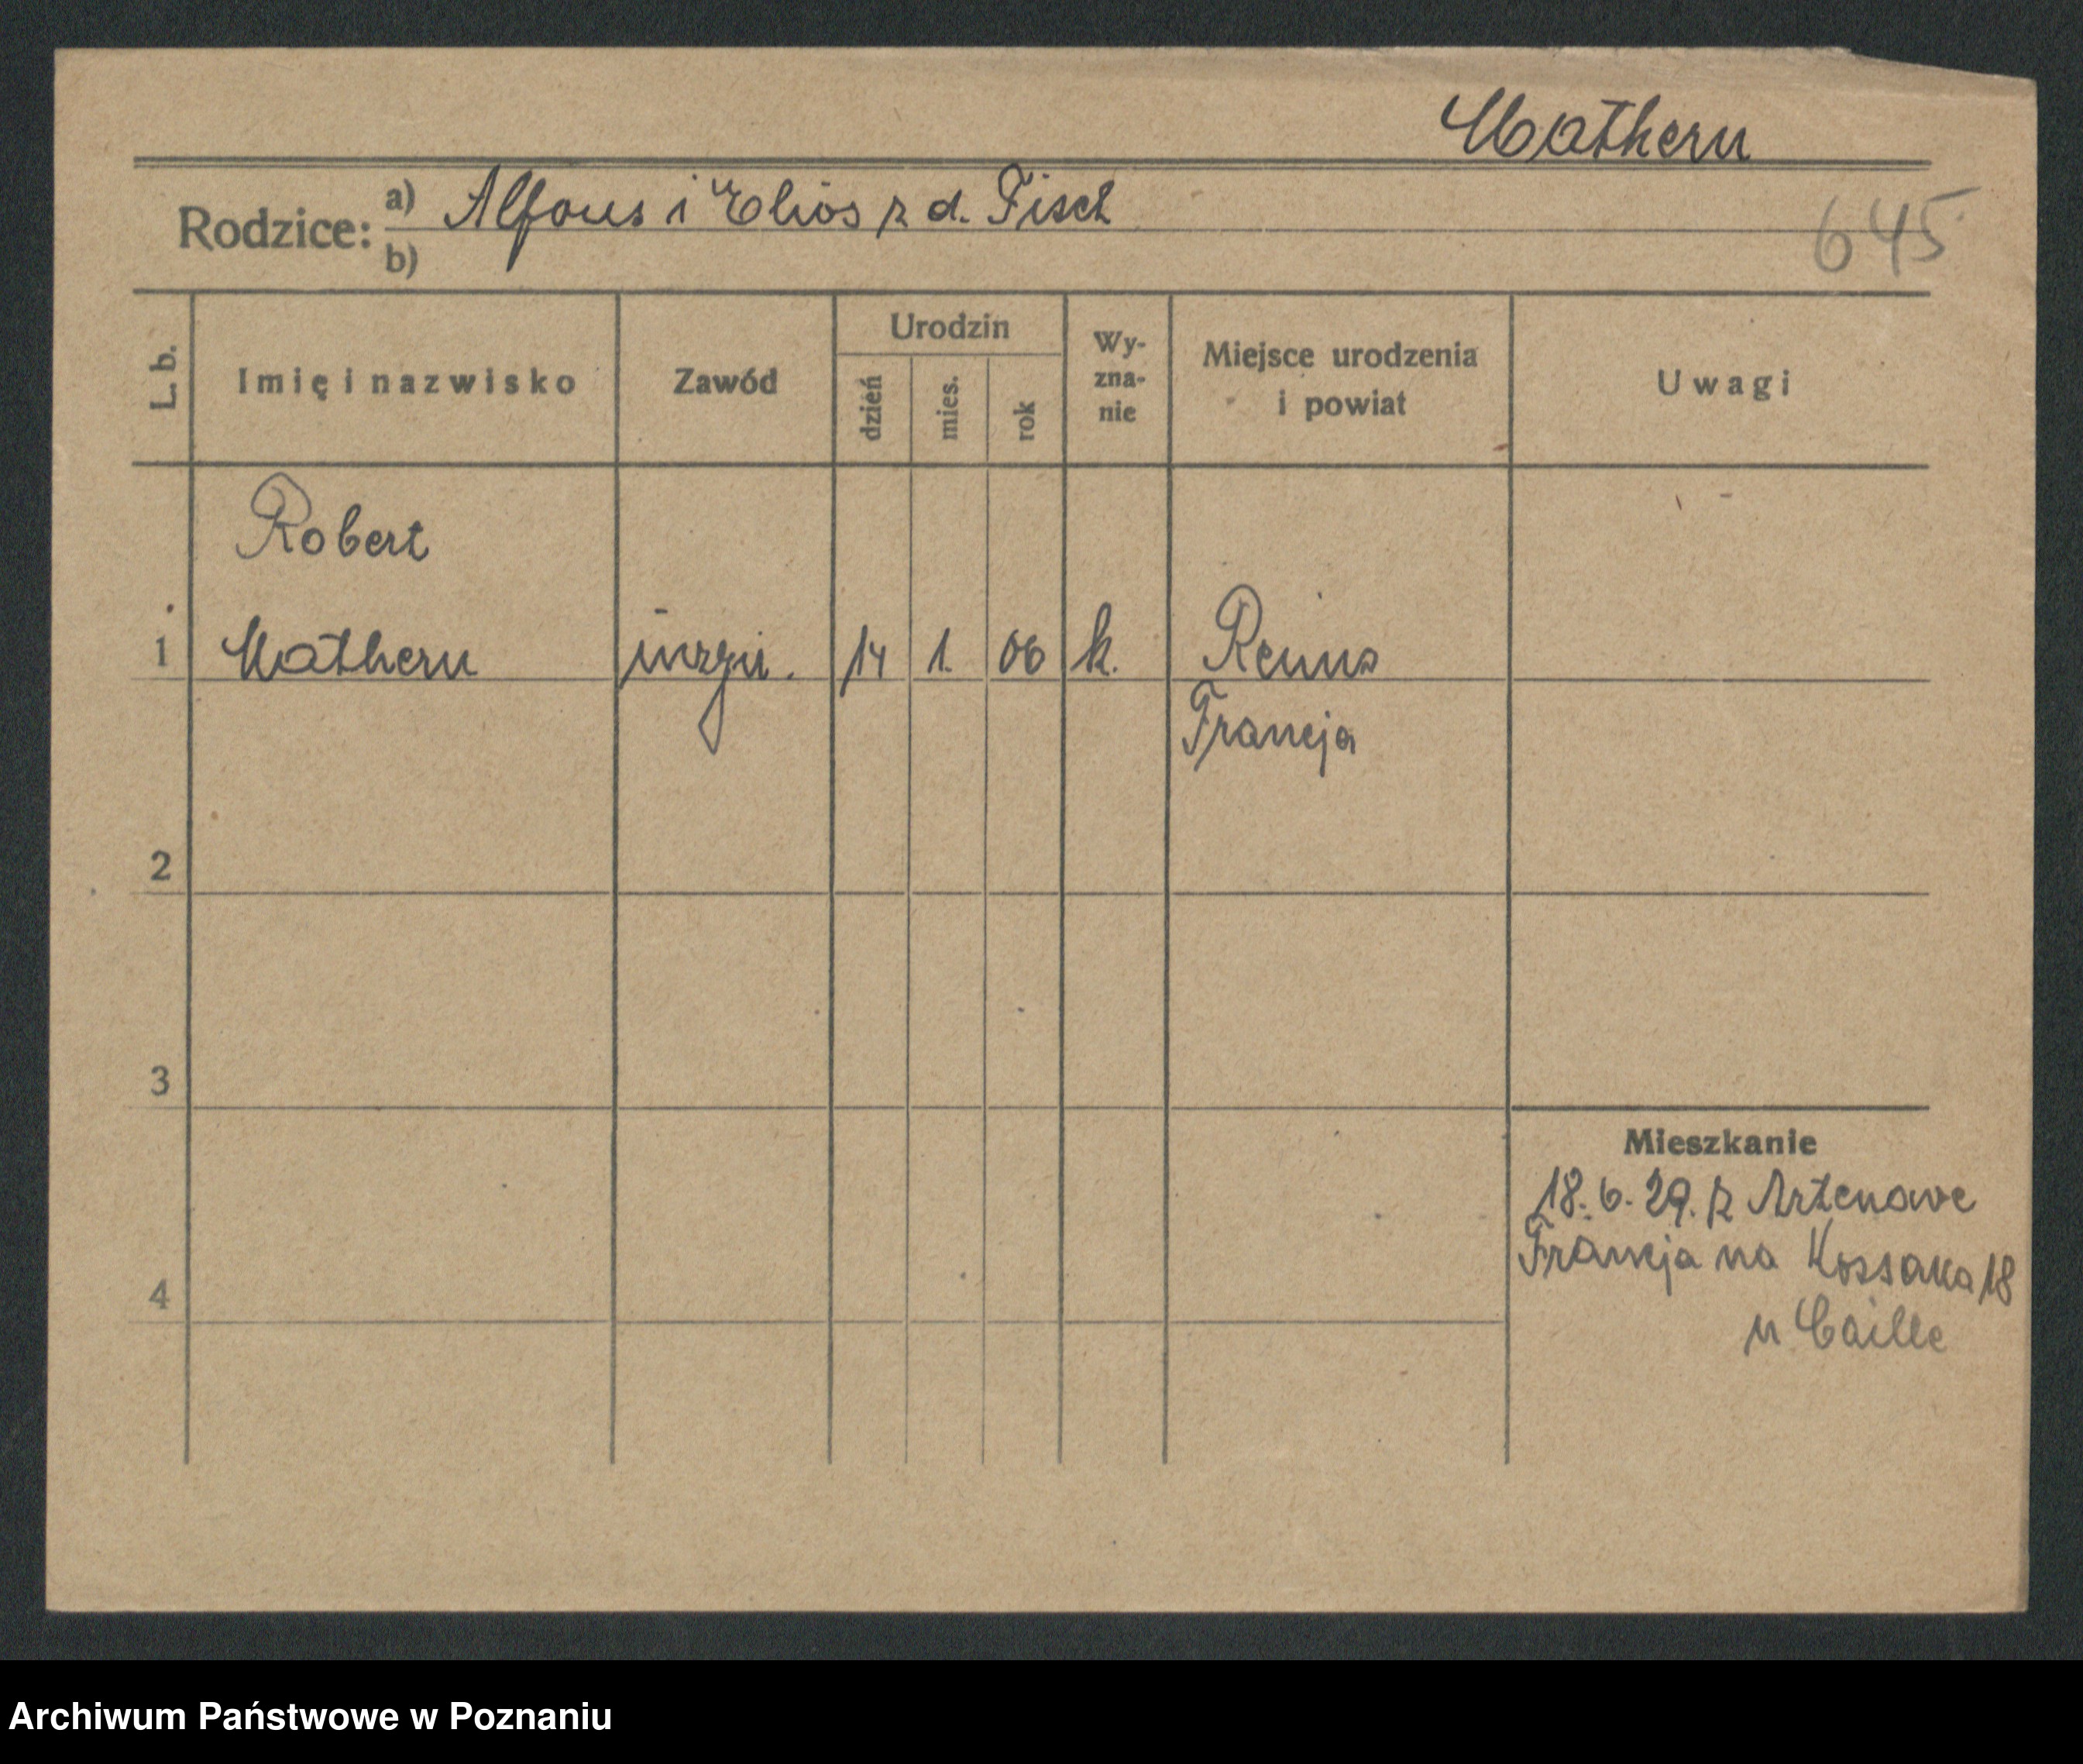 Mathern
Rodzice: a) Alfons i Elios z d. Fisch
b)
645
L. b.
Imię i nazwisko
Zawód
Urodzin
dzień
mies.
rok
Wy-
zna-
nie
Miejsce urodzenia
i powiat
Uwagi
Robert
1 Mathern inżyn. 14 1. 06 k. Reims
Francja
2
3
4
Mieszkanie
18. 6. 29. z Artenave
Francja na Kossaka 18
u Caille
Archiwum Państwowe w Poznaniu